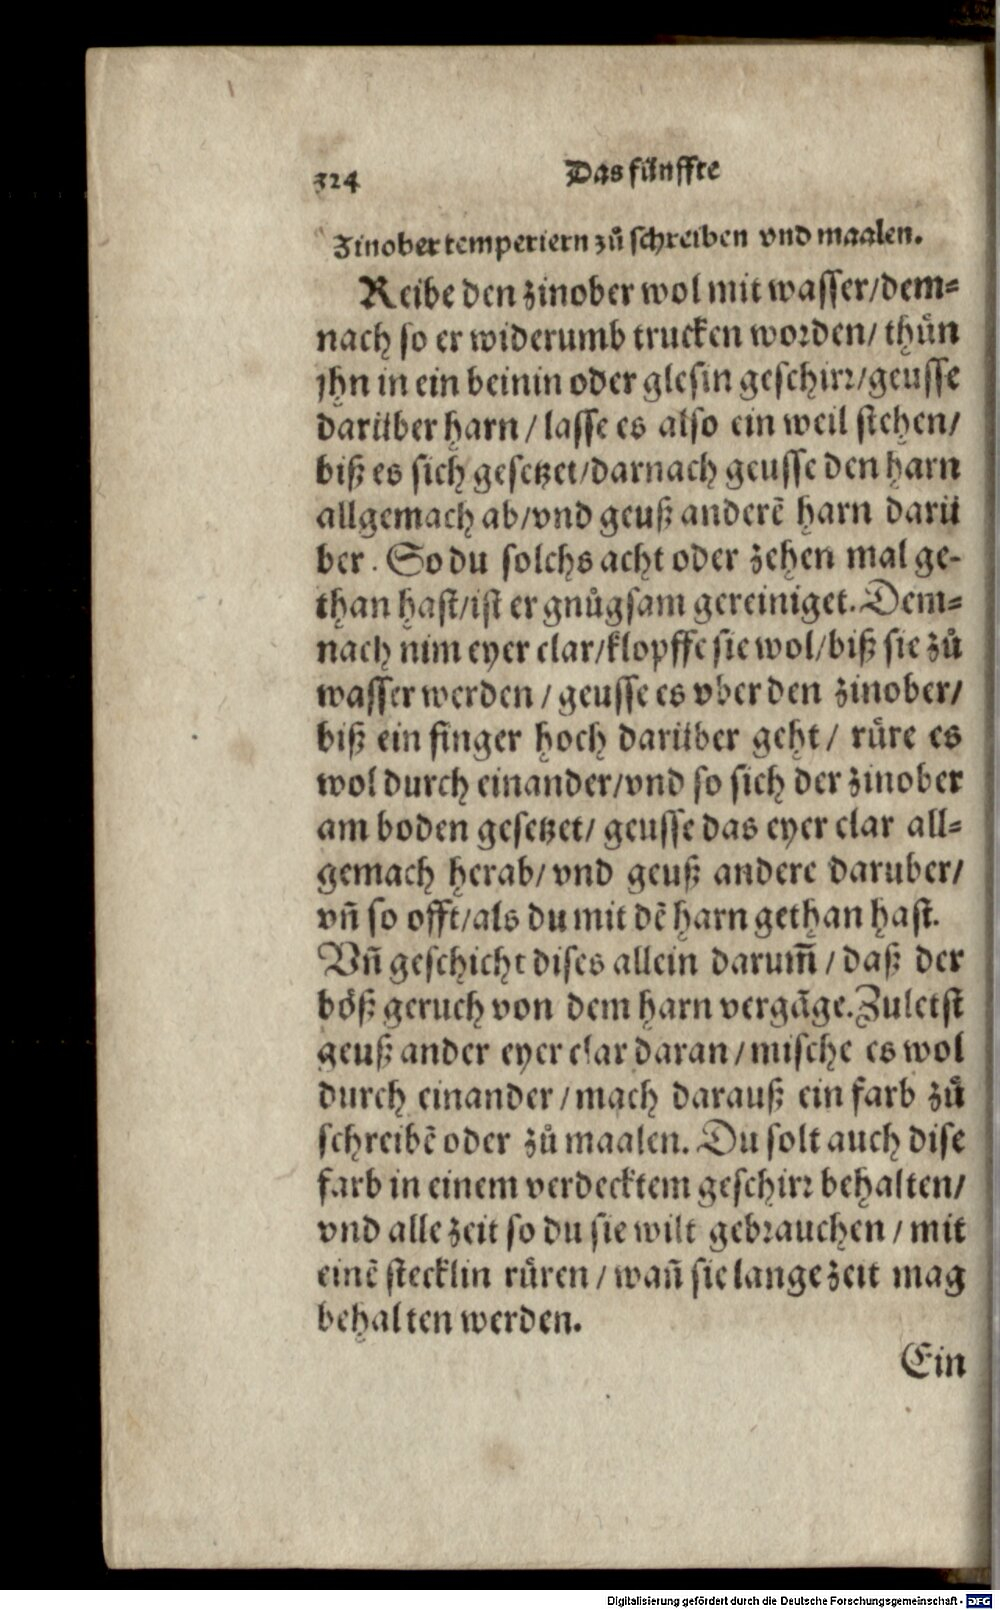 324 Das fünffte
Zinober temperiern zů schreiben vnd maalen.
Reibe den zinober wol mit wasser/dem-
nach so er widerumb trucken worden/ thůn
jhn in ein beinin oder glesin geschirr/geusse
darüber harn / lasse es also ein weil stehen/
biß es sich gesetzet/darnach geusse den harn
allgemach ab/vnd geuß anderẽ harn darü
ber. So du solchs acht oder zehen mal ge-
than hast/ist er gnůgsam gereiniget. Dem-
nach nim eyer clar/klopffe sie wol/biß sie zů
wasser werden / geusse es vber den zinober/
biß ein finger hoch darüber geht / rüre es
wol durch einander/vnd so sich der zinober
am boden gesetzet/ geusse das eyer clar all-
gemach herab/ vnd geuß andere daruber/
vñ so offt/als du mit dẽ harn gethan hast.
Vñ geschicht dises allein darum̃ / daß der
böß geruch von dem harn vergãge. Zuletst
geuß ander eyer clar daran / mische es wol
durch einander / mach darauß ein farb zů
schreibẽ oder zů maalen. Du solt auch dise
farb in einem verdecktem geschirr behalten/
vnd alle zeit so du sie wilt gebrauchen / mit
einẽ stecklin rüren / wañ sie lange zeit mag
behalten werden.
Ein
Digitalisierung gefördert durch die Deutsche Forschungsgemeinschaft - DFG